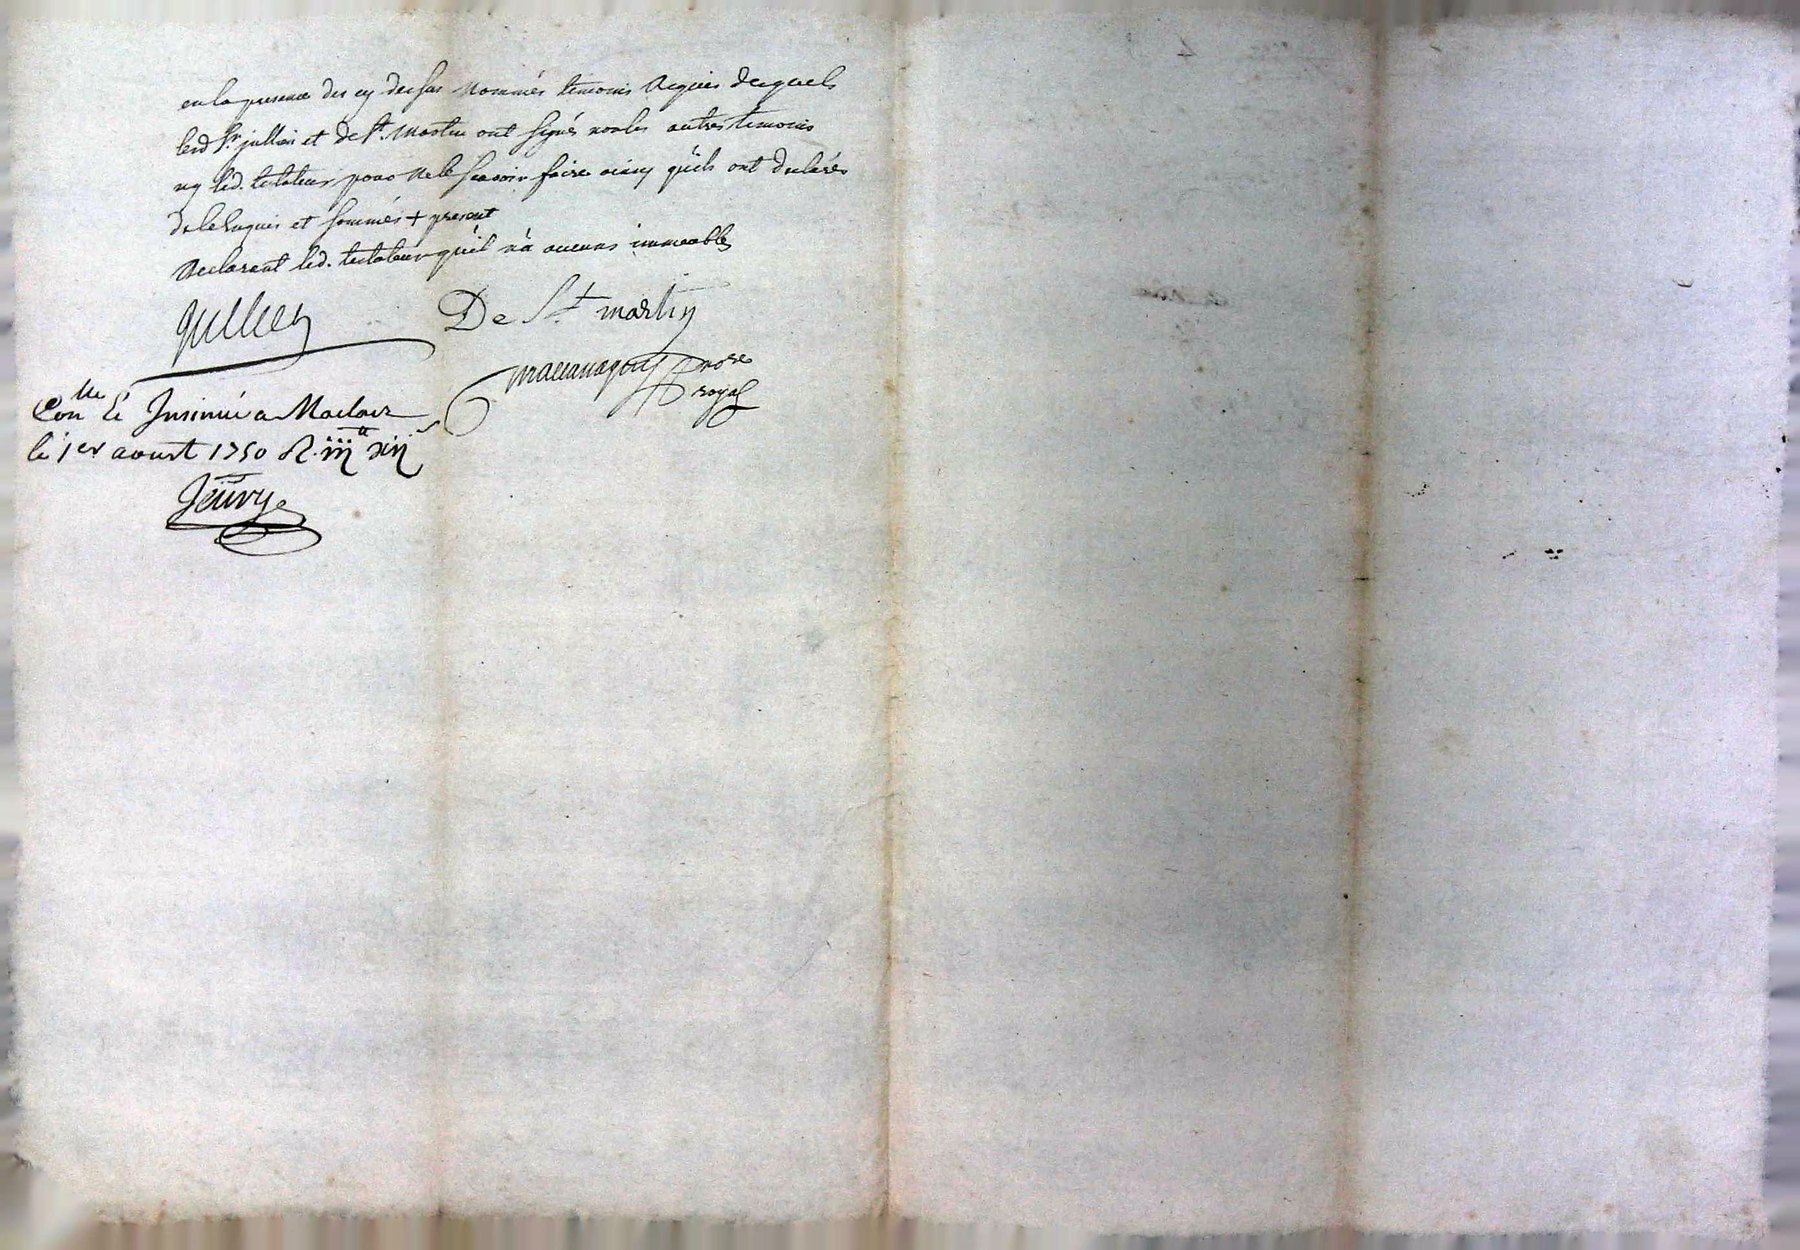 en la presence des cy dessus nommés temoins Requis desquels
led Sr. jullien et de St. Martin ont signés non les autres temoins
ny led. testateur pour ne le scavoir faire ainsy qu'ils ont declarés
de ce Enquis et sommés + present
Declarant led. testateur qu'il n'a aucuns immeubles
jullien De St. martin
nore
royal
Conlle & Insinué a Maclas
le 1er aoust 1750 R. iii tt xii s